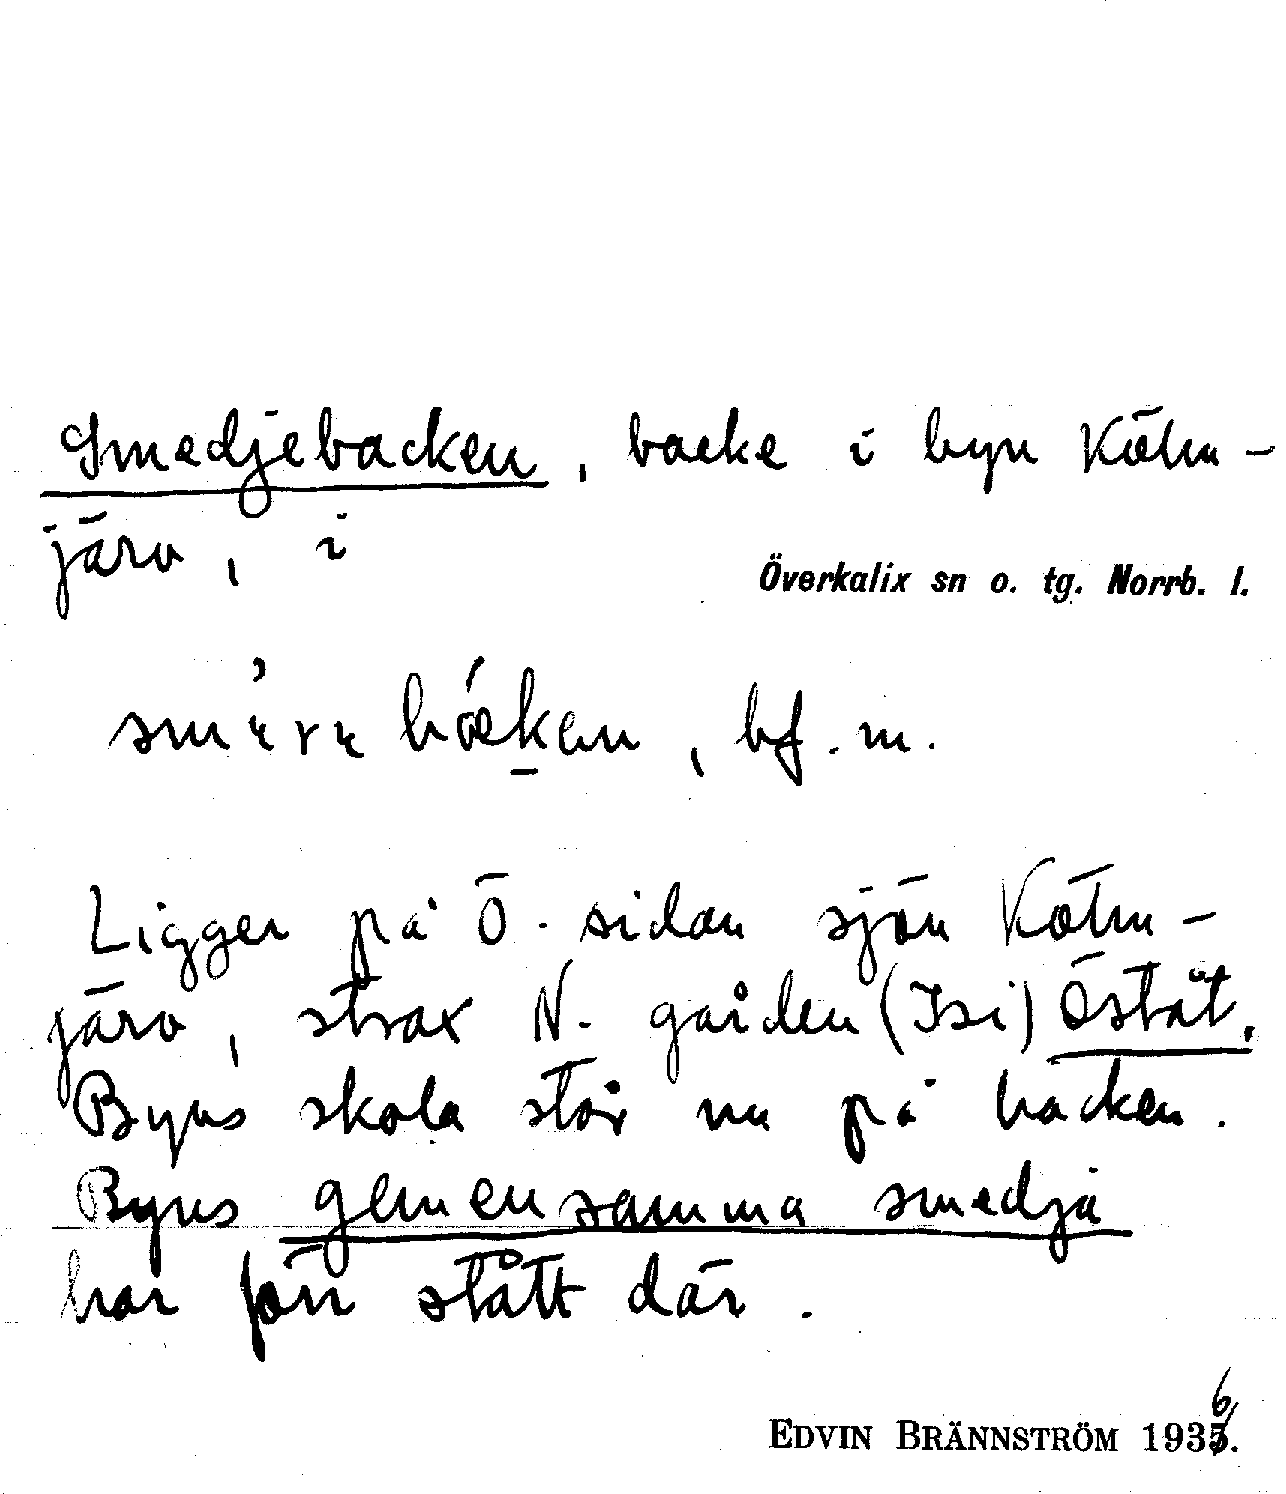 Smedjebacken, backe i byn Kölm-
järv, i
Överkalix sn o. tg. Norrb. l.
bf. m.
Ligger på Ö.-sidan sjön Kölm-
järv, strax N. gården (Isi) Östät.
Byns skola står nu på backen.
Byns gemensamma smedja
har förr stått där.
EDVIN BRÄNNSTRÖM 1936.